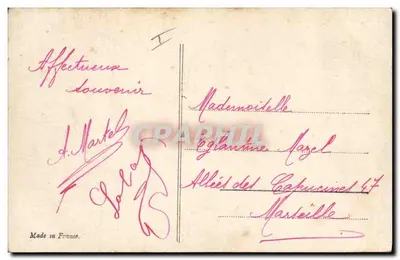 Affectueux
souvenir
A. Martel
Mademoiselle
Eglantine Mazel
Allées des Capucines 47
Marseille
Made in France.
CPAPHIL
I